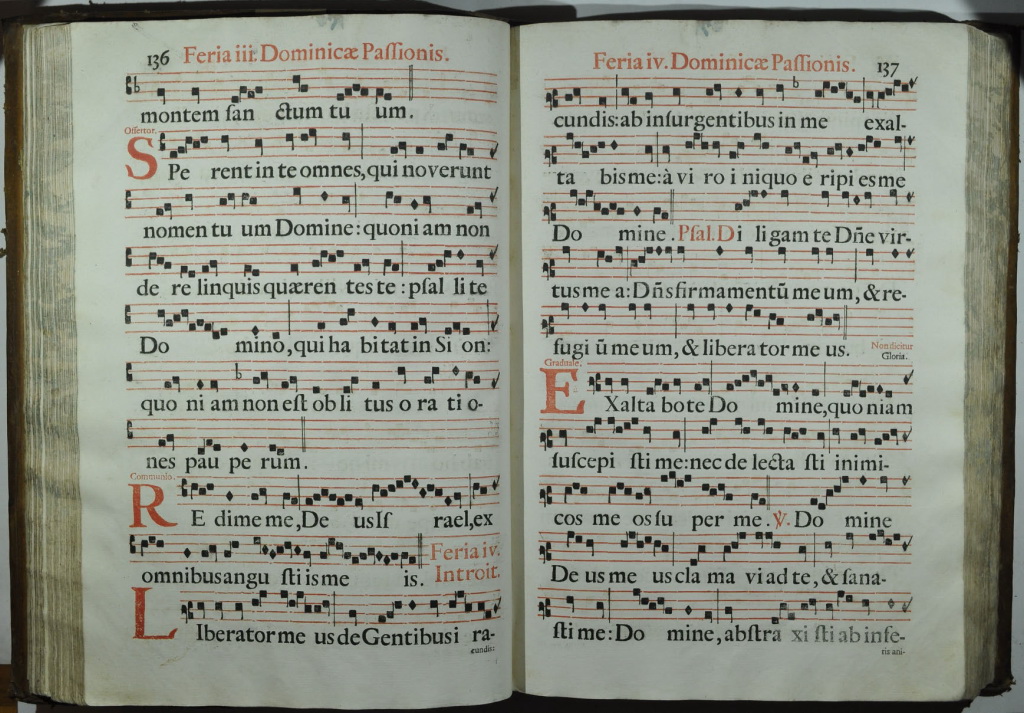 136 Feria iii. Dominicæ Paſſionis.
montem ſan ctum tu um.
Offertor.
SPe rent in te omnes, qui noverunt
nomen tu um Domine: quoni am non
de re linquis quæren tes te: pſal li te
Do mino, qui ha bitat in Si on:
quo ni am non eſt ob li tus o ra ti o-
nes pau pe rum.
Communio.
RE dime me, De us Iſ rael, ex
omnibus angu ſti is me is. Feria iv.
Introit.
LIberator me us de Gentibus i ra-
cundis:
Feria iv. Dominicæ Paſſionis. 137
cundis: ab inſurgentibus in me exal-
ta bis me: à vi ro i niquo e ripi es me
Do mine. Pſal. Di ligam te Dñe vir-
tus me a: Dñs firmamentũ me um, & re-
fugi ũ me um, & libera tor me us. Non dicitur
Gloria.
Graduale.
EXalta bo te Do mine, quo niam
ſuſcepi ſti me: nec de lecta ſti inimi-
cos me os ſu per me. ℣. Do mine
De us me us cla ma vi ad te, & ſana-
ſti me: Do mine, abſtra xi ſti ab infe-
ris ani-